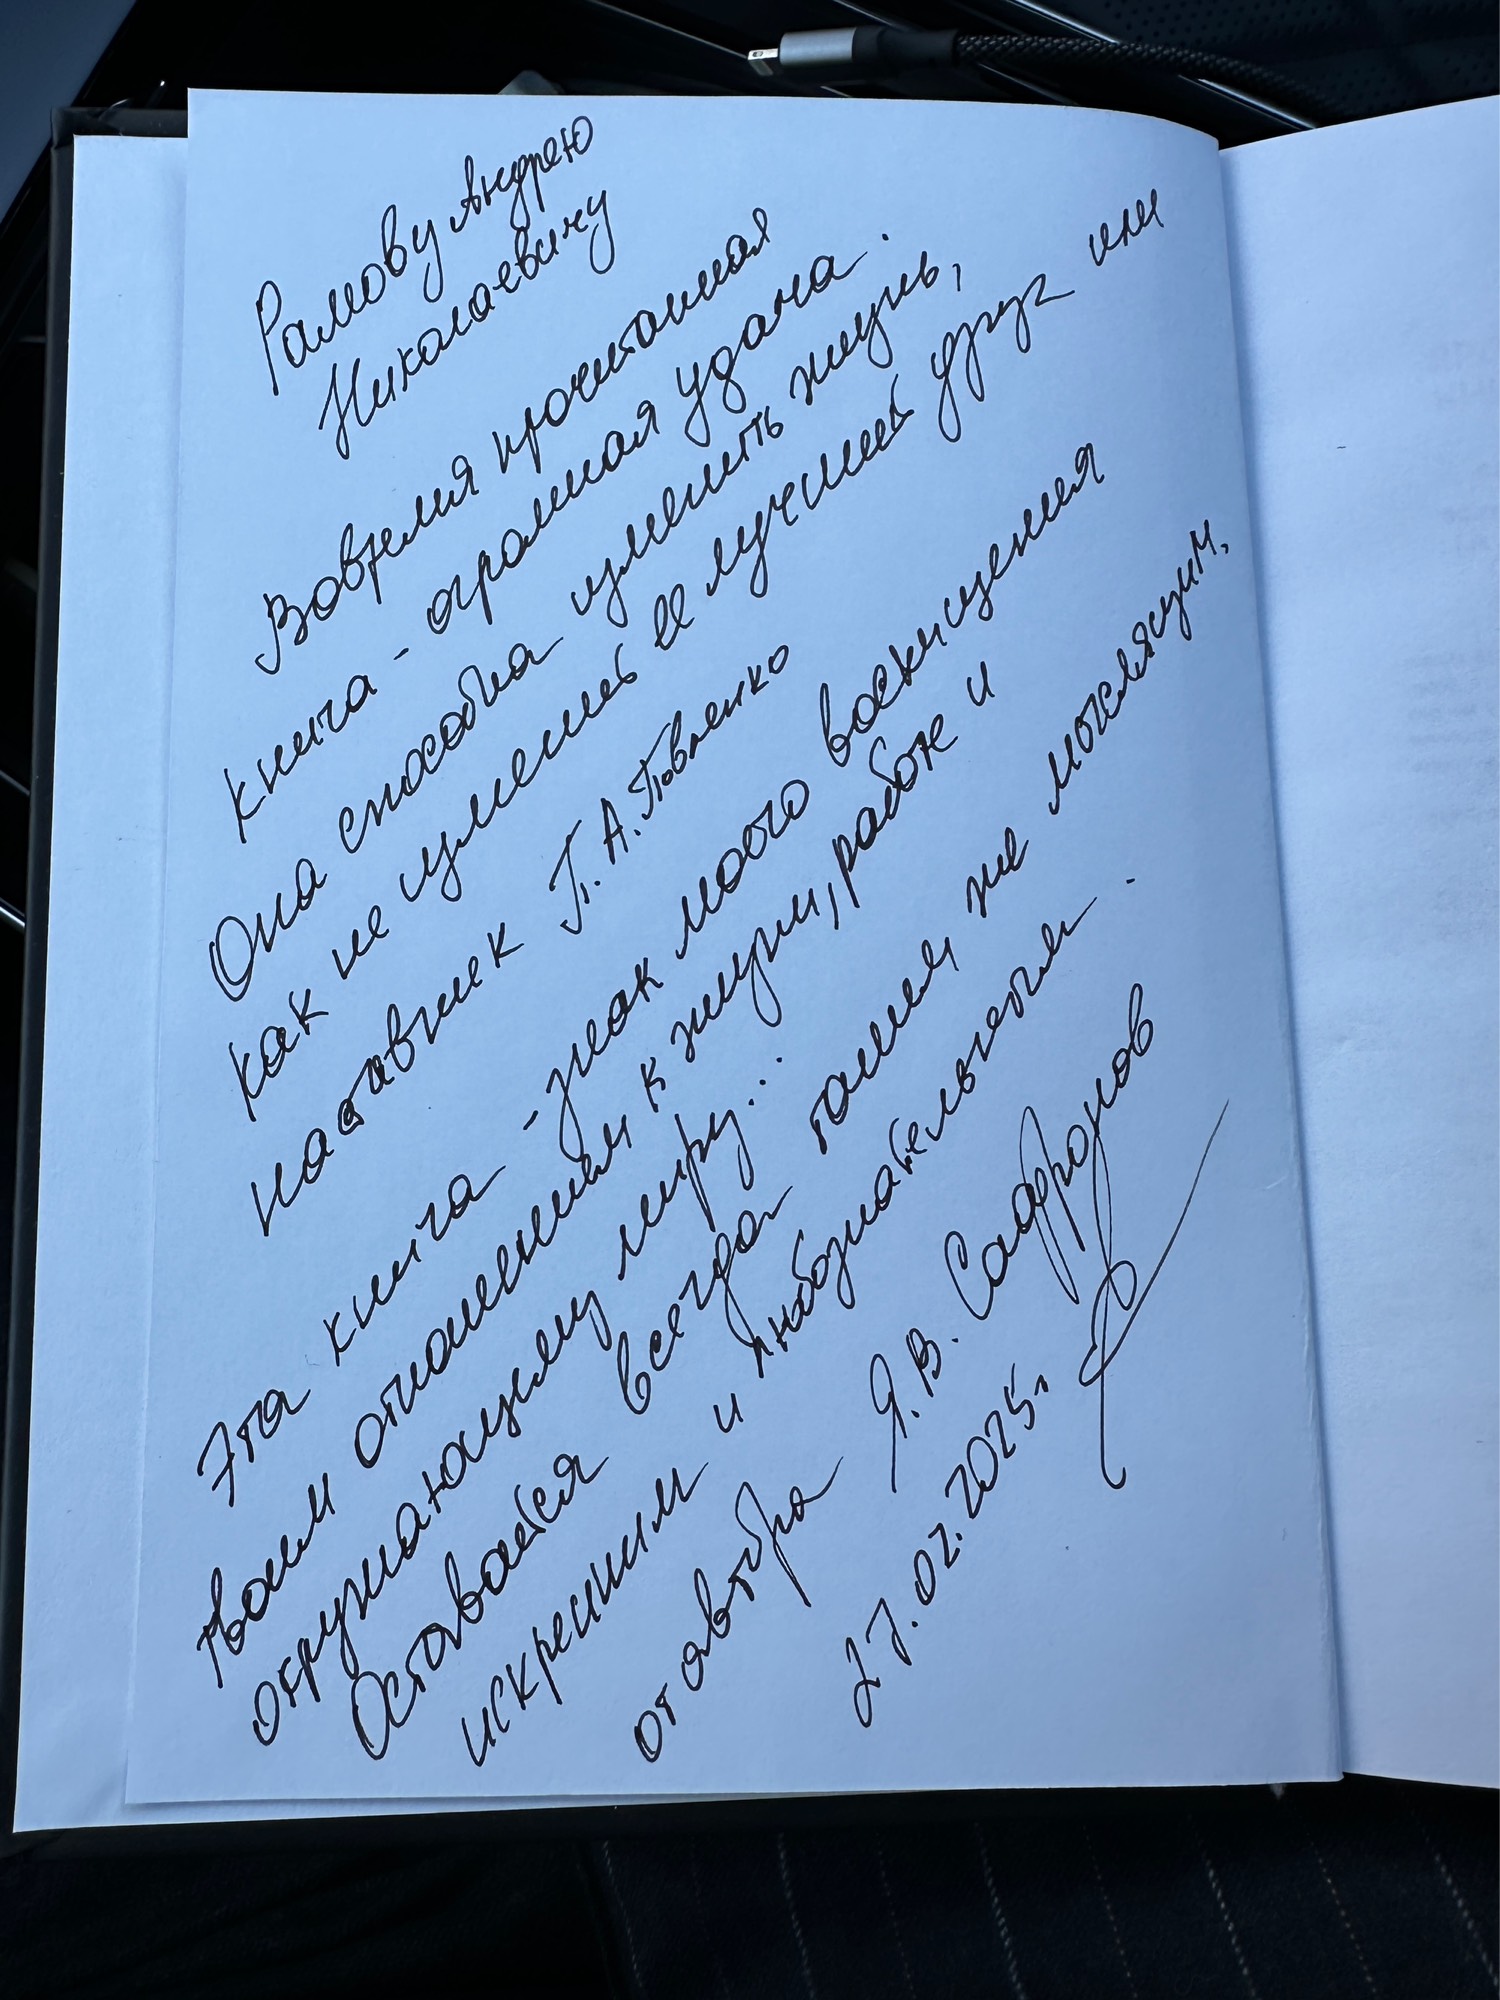 Рамову Андрею
Николаевичу
Вовремя прочитанная
книга - огромная удача.
Она способна изменить жизнь,
как не изменит её лучший друг или
наставник П. А. Павленко
Эта книга - знак моего восхищения
твоим отношением к жизни, работе и
окружающему миру...
Оставайся всегда таким же мыслящим,
искренним и любознательным.
от автора Я. В. Сафронов
27.02.2025г